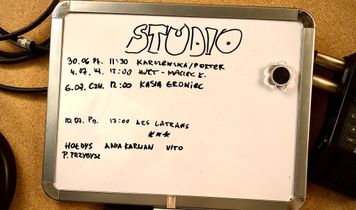 STUDIO
30.06 Pt. 11:30 KAROLEWSKA/PORTER
4.07. 12:00 - MACIEK.
6.07. CZW. 12:00 KASIA GRONIEC
10.07. Pn. 13:00 ARS LATRANS
***
HOŁDYS ANNA KARWAN VITO
P. PRZYBYSZ